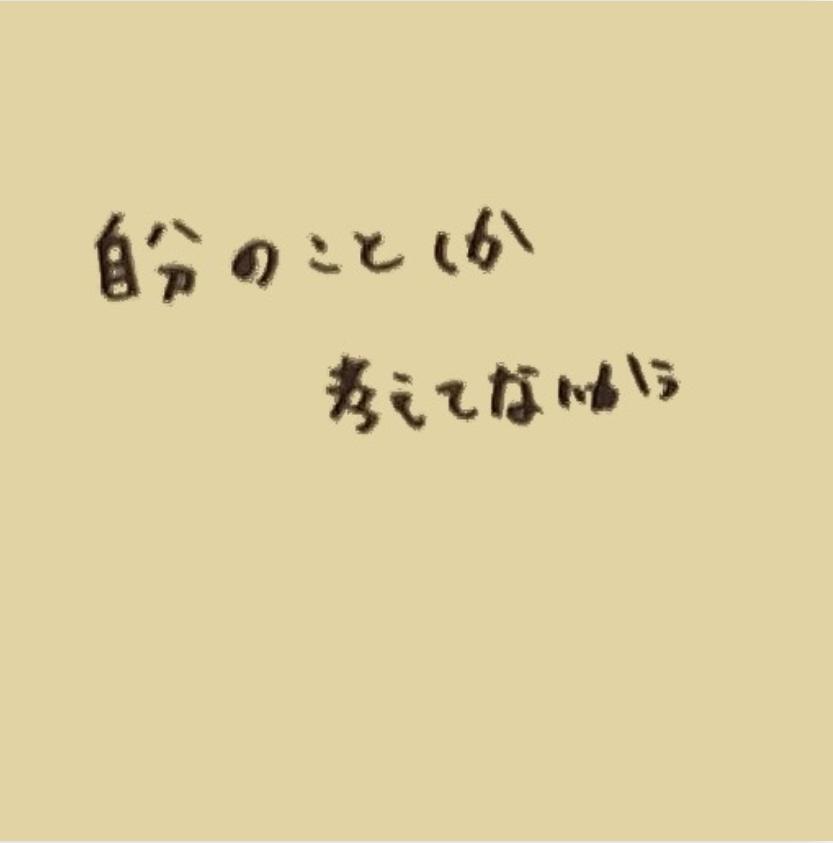 自分のことしか
考えてないから